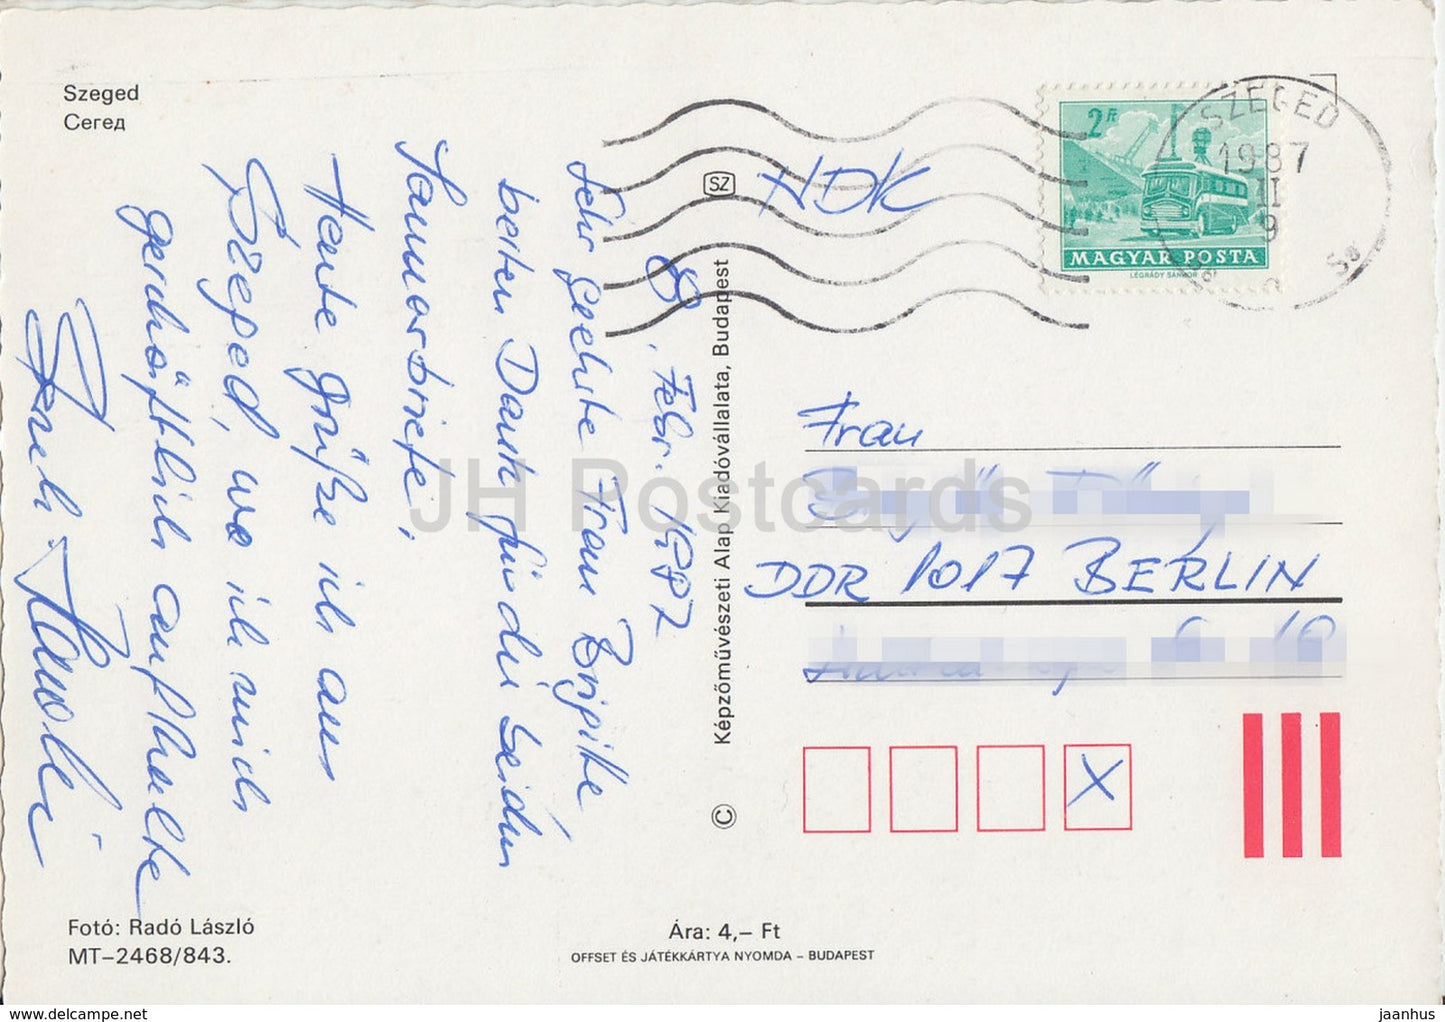 Szeged
Сегед
8. Febr. 1987
Sehr geehrte Frau Brigitte
besten Dank für die beiden
Sammorbriefe,
Heute grüße ich aus
Szeged, wo ich mich
geschäftlich aufhalte
SZ
HDK
2 Ft
MAGYAR POSTA
LÉGRÁDY SÁNDOR
SZEGED
1987
II
9
Frau
DDR 1017 BERLIN
X
Képzőművészeti Alap Kiadóvállalata, Budapest
©
Fotó: Radó László
MT–2468/843.
Ára: 4,– Ft
OFFSET ÉS JÁTÉKKÁRTYA NYOMDA – BUDAPEST
JH Postcards
www.delcampe.net
jaanhus